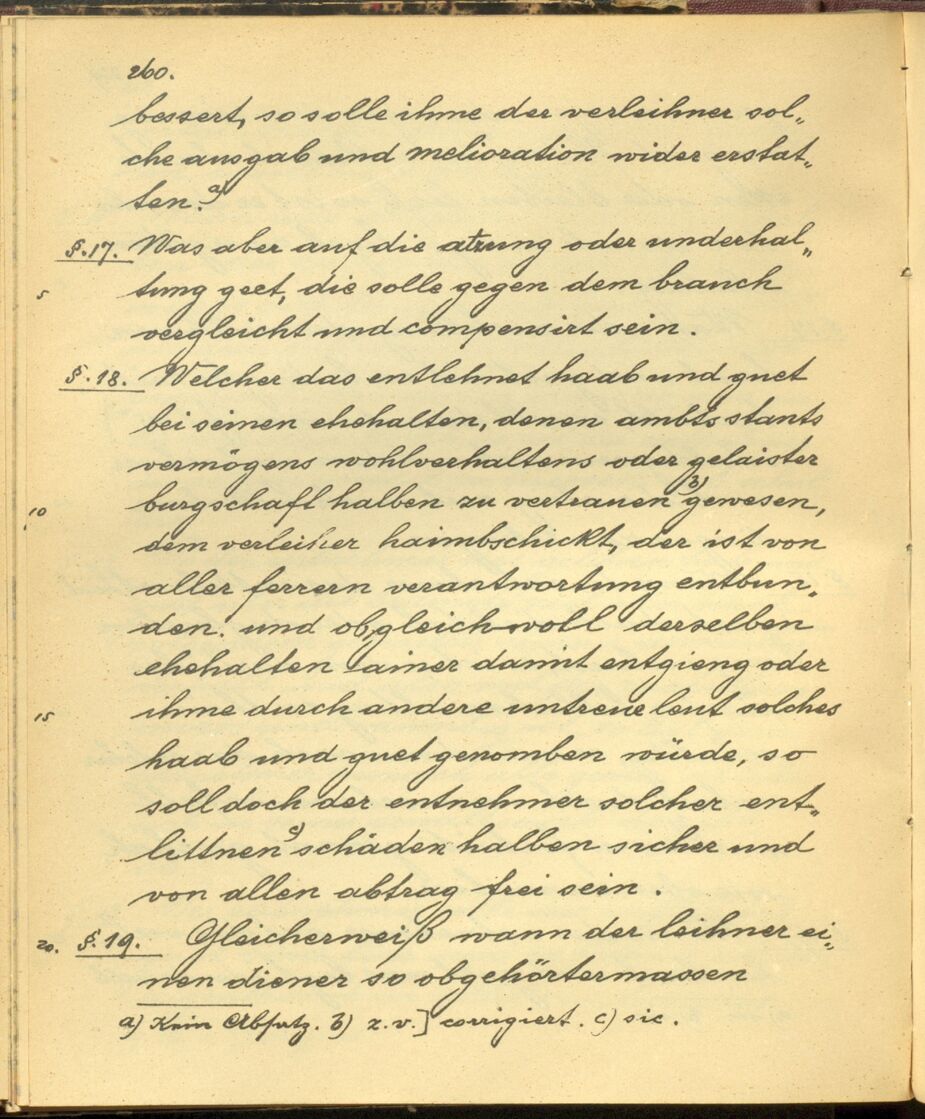 260.
bessert, so solle ihme der verleihner sol„
che ausgab und melioration wider erstat„
ten. a)
§. 17. Was aber auf die atzung oder underhal„
5 tung geet, die solle gegen dem brauch
vergleicht und compensirt sein.
§. 18. Welcher das entlehnet haab und guet
bei seinen ehehalten, denen ambts stants
vermögens wohlverhaltens oder gelaister
10 burgschaft halben zu vertrauen b) gewesen,
dem verleiher haimbschickt, der ist von
aller ferrern verantwortung entbun„
den. und ob gleichwoll derselben
ehehalten ainer damit entgieng oder
15 ihme durch andere untreue leut solches
haab und guet genomben würde, so
soll doch der entnehmer solcher ent„
littnen c) schäden halben sicher und
von allen abtrag frei sein.
20. §. 19. Gleicherweiß wann der leihner ei„
nen diener so obgehörtermassen
a) Kein Absatz. b) z. v.] corrigiert. c) sic.